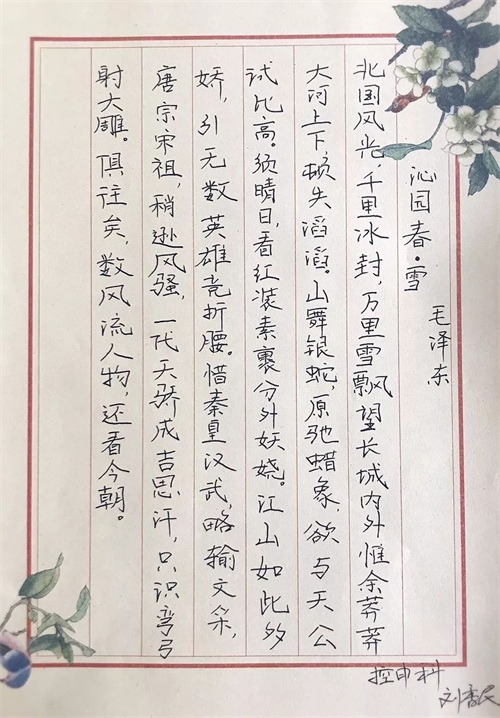 沁园春·雪
毛泽东
北国风光，千里冰封，万里雪飘望长城内外惟余莽莽
大河上下，顿失滔滔。山舞银蛇，原驰蜡象，欲与天公
试比高。须晴日，看红装素裹分外妖娆。江山如此多
娇，引无数英雄竞折腰。惜秦皇汉武，略输文采，
唐宗宋祖，稍逊风骚，一代天骄成吉思汗，只识弯弓
射大雕。俱往矣，数风流人物，还看今朝。
控申科